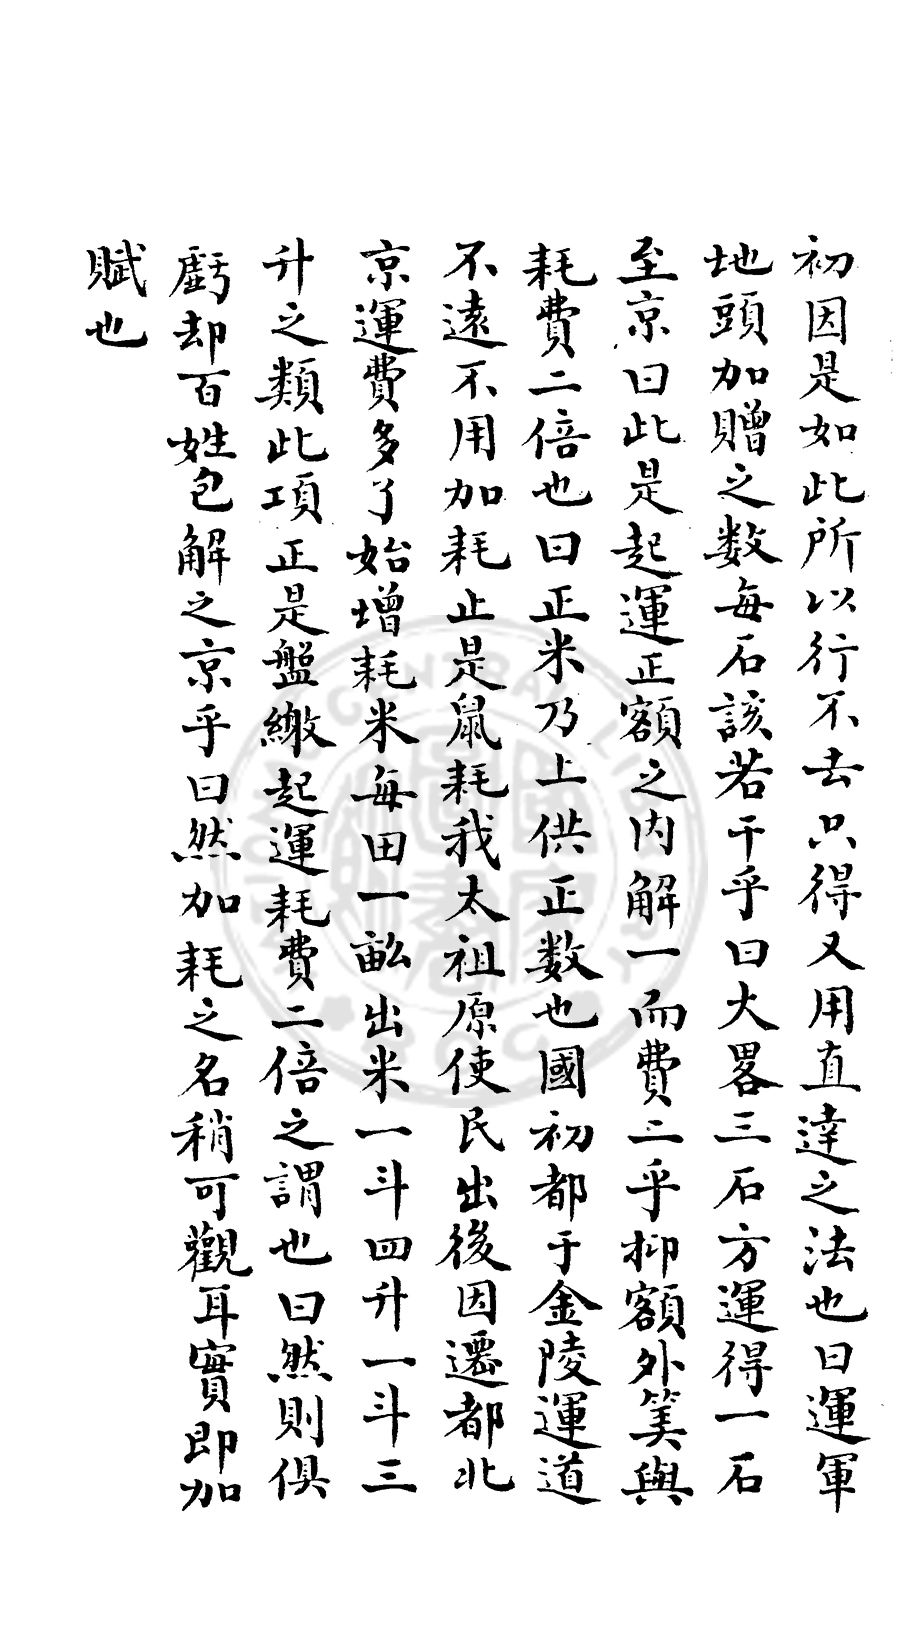 初因是如此所以行不去只得又用直達之法也曰運軍
地頭加贈之数每石該若干乎曰大畧三石方運得一石
至京曰此是起運正額之内解一而費二乎抑額外筭與
耗費二倍也曰正米乃上供正数也國初都于金陵運道
不遠不用加耗止是鼠耗我太祖原使民出後因遷都北
京運費多了始增耗米每田一畝出米一斗四升一斗三
升之類此項正是盤繳起運耗費二倍之謂也曰然則俱
虧却百姓包解之京乎曰然加耗之名稍可觀耳實即加
賦也